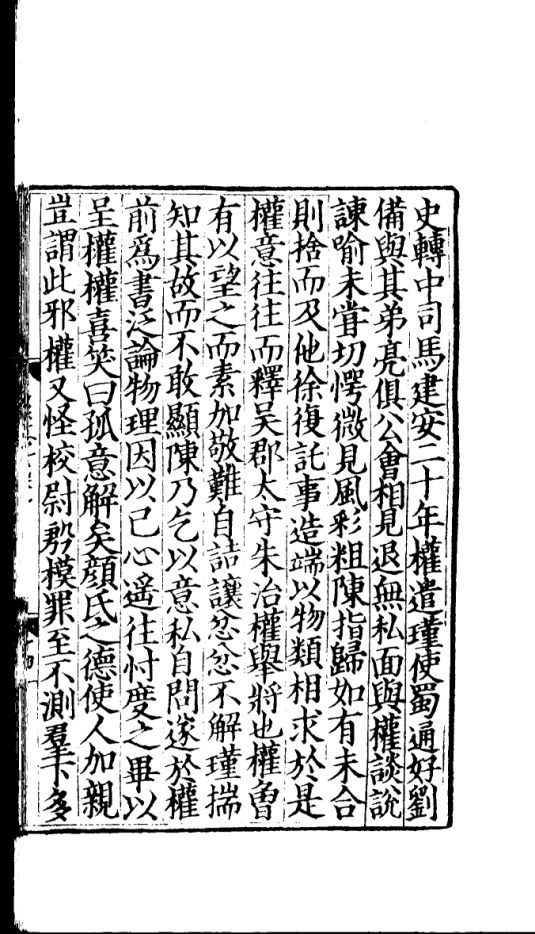 史轉中司馬建安二十年權遣瑾使蜀通好劉
備與其弟亮俱公會相見退無私面與權談說
諫喻未甞切愕微見風彩粗陳指歸如有未合
則捨而及他徐復託事造端以物類相求於是
權意往往而釋吴郡太守朱治權舉將也權曾
有以望之而素加敬難自詰讓忿忿不解瑾揣
知其故而不敢顯陳乃乞以意私自問遂於權
前爲書泛論物理因以己心遥往忖度之畢以
呈權權喜笑曰孤意解矣顔氏之德使人加親
豈謂此邪權又怪校尉殷模罪至不測羣下多